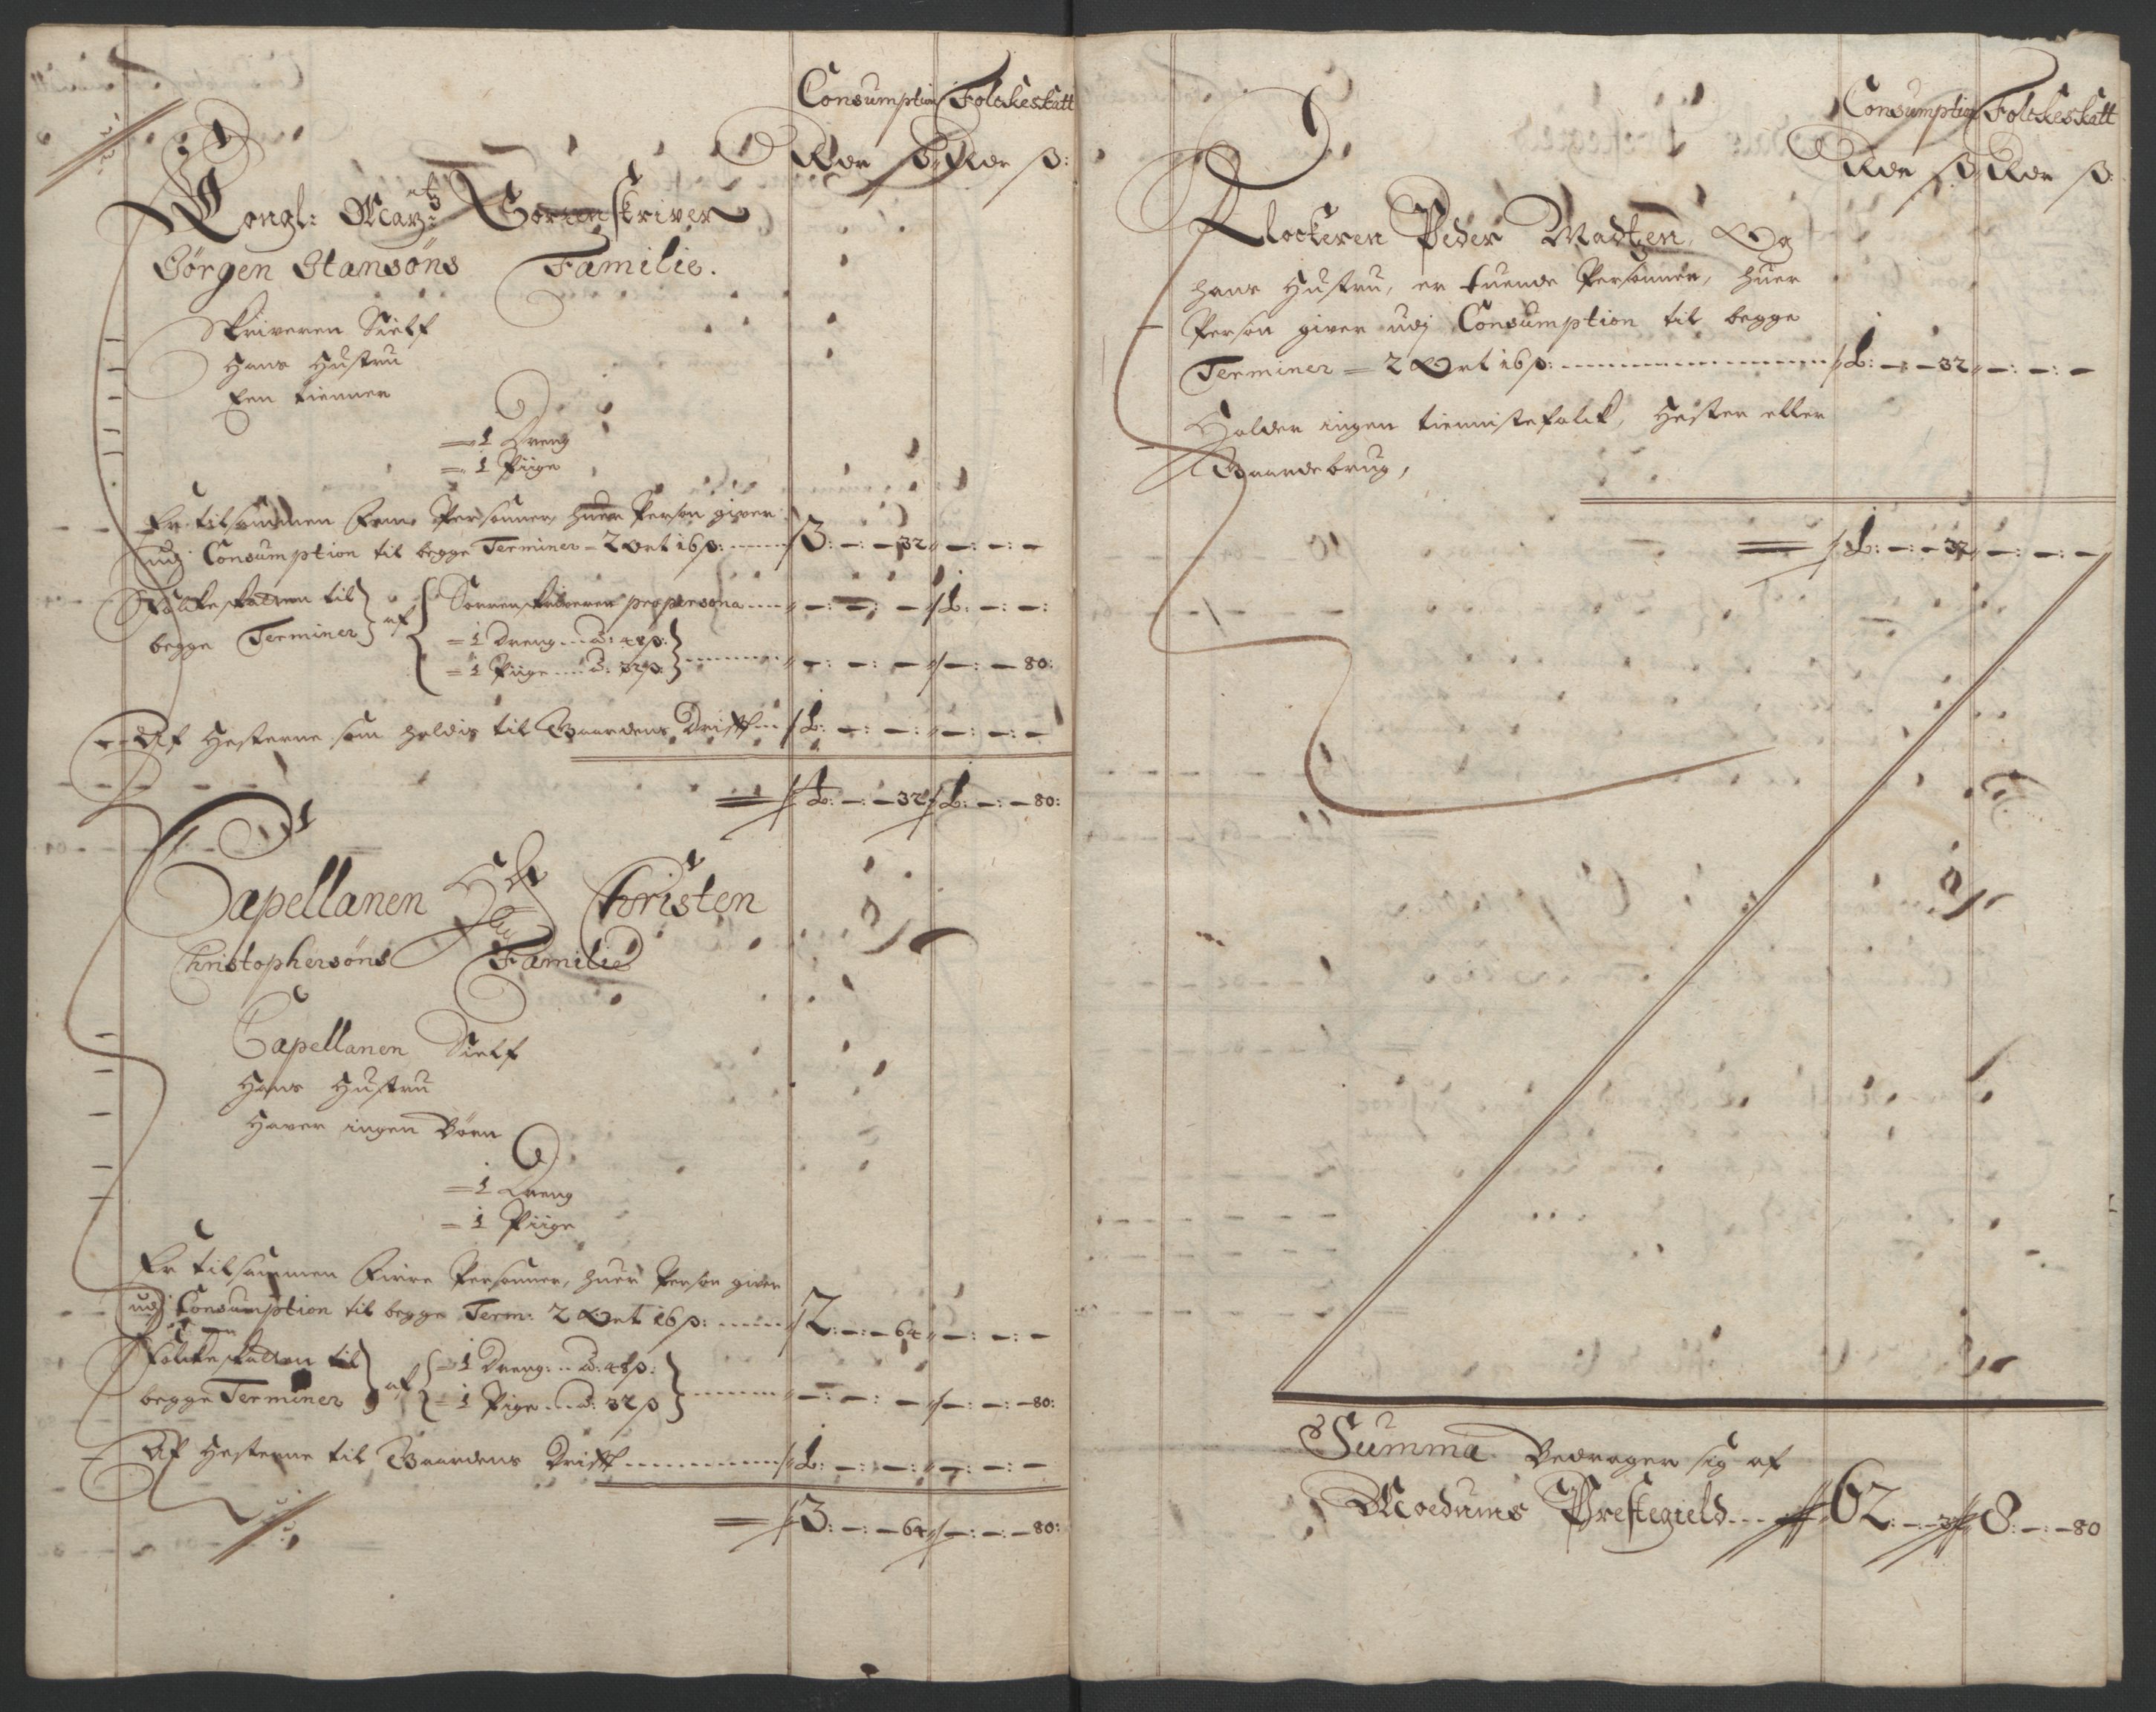 Consumption Folckeskatt
Rdr ß: Rdr ß:
Kongl: Mayts: Sorrenskriver
Jörgen Hansöns Familie.
Skriveren Sielf
Hans Hustru
Een tienner
= 1 Dreng
= 1 Piige
Er tilsammen Fem Personner, huer Person giver
udj Consumption til begge Terminer = 2 Ort 16 ß: 3: —: — 32 —: —: —
Folckeskatten til begge Terminer af Sorrenskriveren pro persona —: —: — 1: —: —:
= 1 Dreng a: 48 ß:
= 1 Piige a: 32 ß: —: —: — —: — 80:
Af Hesterne som holdis til Gaardens Drifft 1: —: —: —: —: —
= 4: —: — 32 1: —: — 80:
Capellanen Hr Christen
Christophersöns Familie
Capellanen Sielf
Hans Hustru
Haver ingen Börn
= 1 Dreng
= 1 Piige
Er tilsammen Fiire Personner, huer Person giver
udj Consumption til begge Term: 2 Ort 16 ß: 2: —: — 64 —: —: —
Folckeskatten til begge Terminer af = 1 Dreng: a: 48 ß:
= 1 Pige a: 32 ß —: —: — —: —: — 80:
Af Hesterne til Gaardens Drifft 1: —: —: —: —: —
= 3: —: — 64 —: —: — 80:
Consumption Folckeskatt
Rdr ß Rdr ß:
Klockeren Peder Madtzen, Og
hans Hustru, er tuende Personner, huer
Person giver udj Consumption til begge
Terminer = 2 Ort 16 ß: 1: —: — 32 —: —: —
Holder ingen tiennistefolck, Hester eller
Gaardebrug,
1: —: — 32 —: —: —
Summa Bedrager sig af
Modums Prestegield 62: —: — 32 8: —: — 80